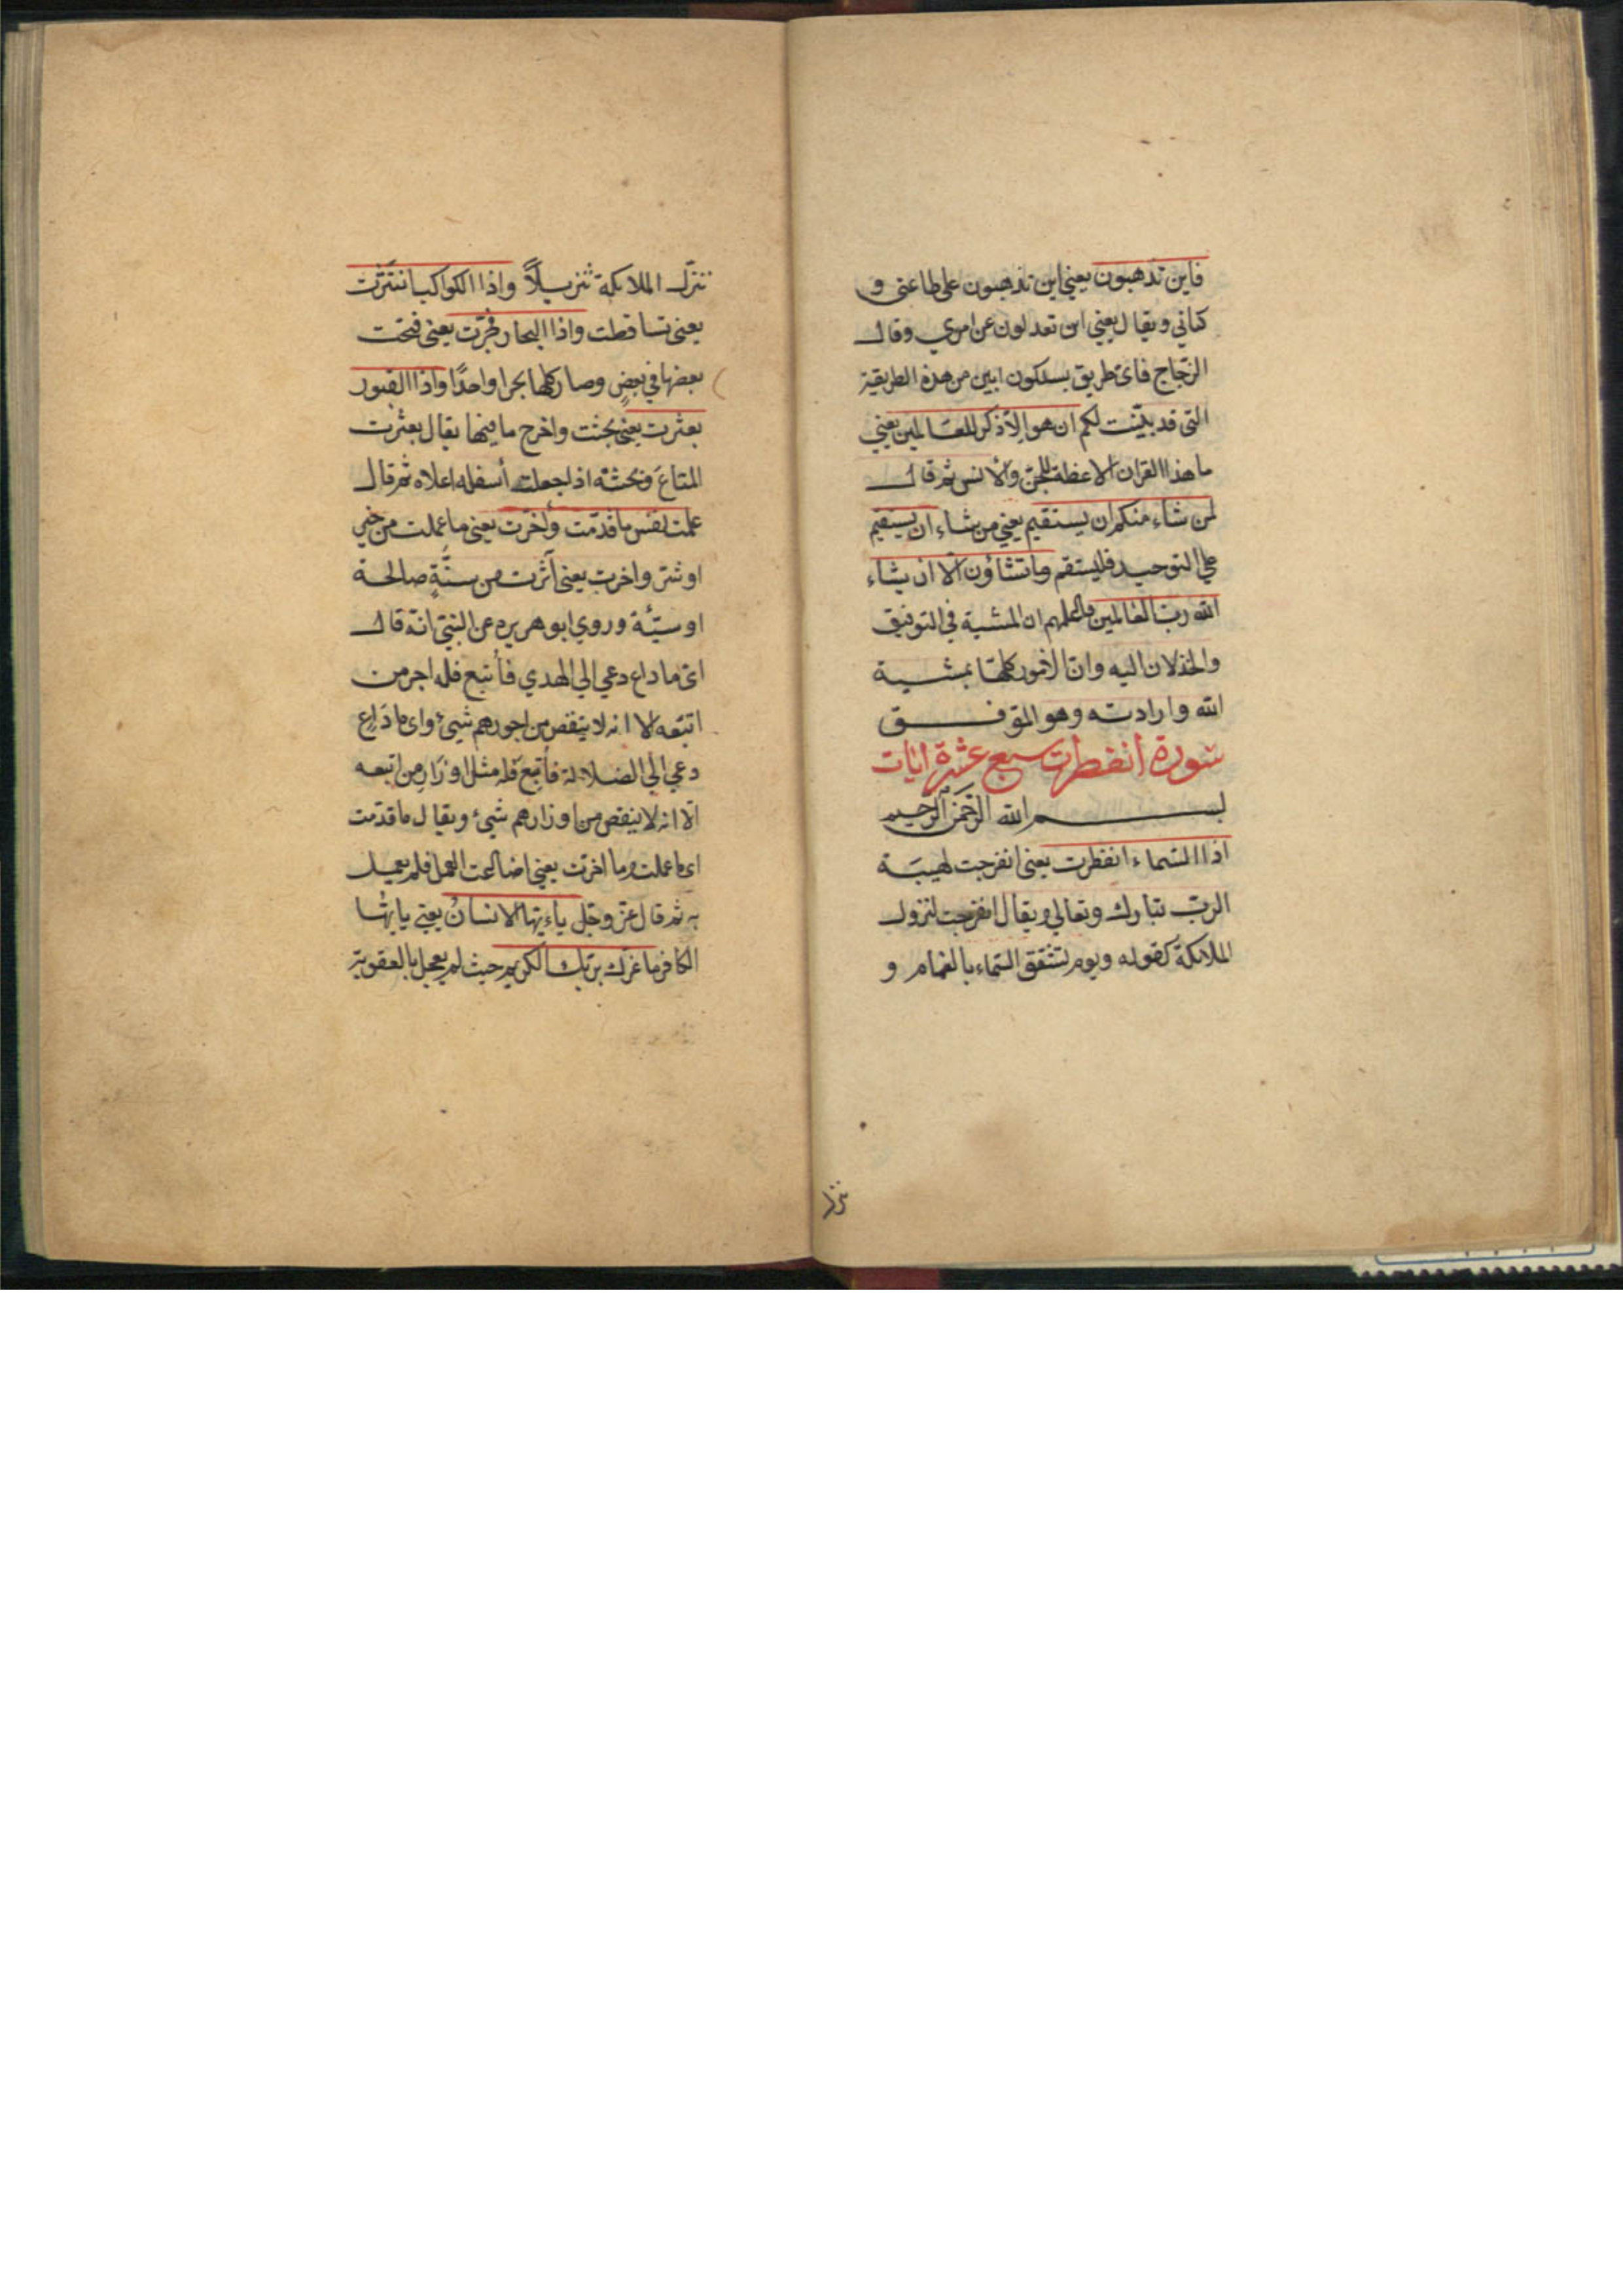 فاين تذهبون يعني اين تذهبون على طاعتى و
كتابي ويقال يعني اين تعدلون عن امري وقال
الزجّاج فاىّ طريق يسلكون ابين من هذه الطريقة
التى قد بيّنت لكم ان هو الاّ ذكر للعالمين يعني
ما هذا القران الا عظة للجنّ والانس ثم قال
لمن شاء منكم ان يستقيم يعني من شاء ان يستقيم
علي التوحيد فليستقم وما تشاؤن الّا ان يشاء
الله ربّ العالمين فاعلمهم ان المشية في التوفيق
والخذلان اليه وانّ الامور كلها بمشية
الله وارادته وهو الموفق
سورة انفطرت سبع عشرة ايات
بسم الله الرحمن الرحيم
اذا السّماء انفطرت يعنى انفرجت لهيبة
الربّ تبارك وتعالي ويقال انفرجت لنزول
الملائكة كقوله ويوم تشقق السّماء بالغمام و
ننزّل
ننزّل الملائكة تنزيلاً واذا الكواكب انتثرت
يعنى تساقطت واذا البحار فجّرت يعنى فتحت
بعضها في بعضٍ وصار كلها بحرا واحدًا واذا القبور
بعثرت يعني بحثت واخرج ما فيها يقال بعثرت
المتاعَ وبحثته اذا جعلت أسفله اعلاه ثم قال
علمت نفس ما قدّمت وأخّرت يعني ما عملت من خير
او شرّ واخرت يعنى أثرت من سنّةٍ صالحة
او سيّئة وروي ابو هريره عن النبيّ انّه قال
اىّ ما داع دعي الي الهدي فأتبع فله اجر من
اتبّعه الا انه لا ينقص من اجورهم شيئ واى ما دَاعٍ
دعي الي الضلالة فأتبع فله مثل اوزار من اتبعه
الّا انه لا ينقص من اوزارهم شيئ ويقال ما قدّمت
اى ما عملت وما اخرّت يعني اضاعت العمل فلم يعمل
به ثم قال عزّ وجلّ ياءيها الانسانُ يعني يايّها
الكافر ما غرّك بربّك الكريم حيث لم يعجل بالعقوبة